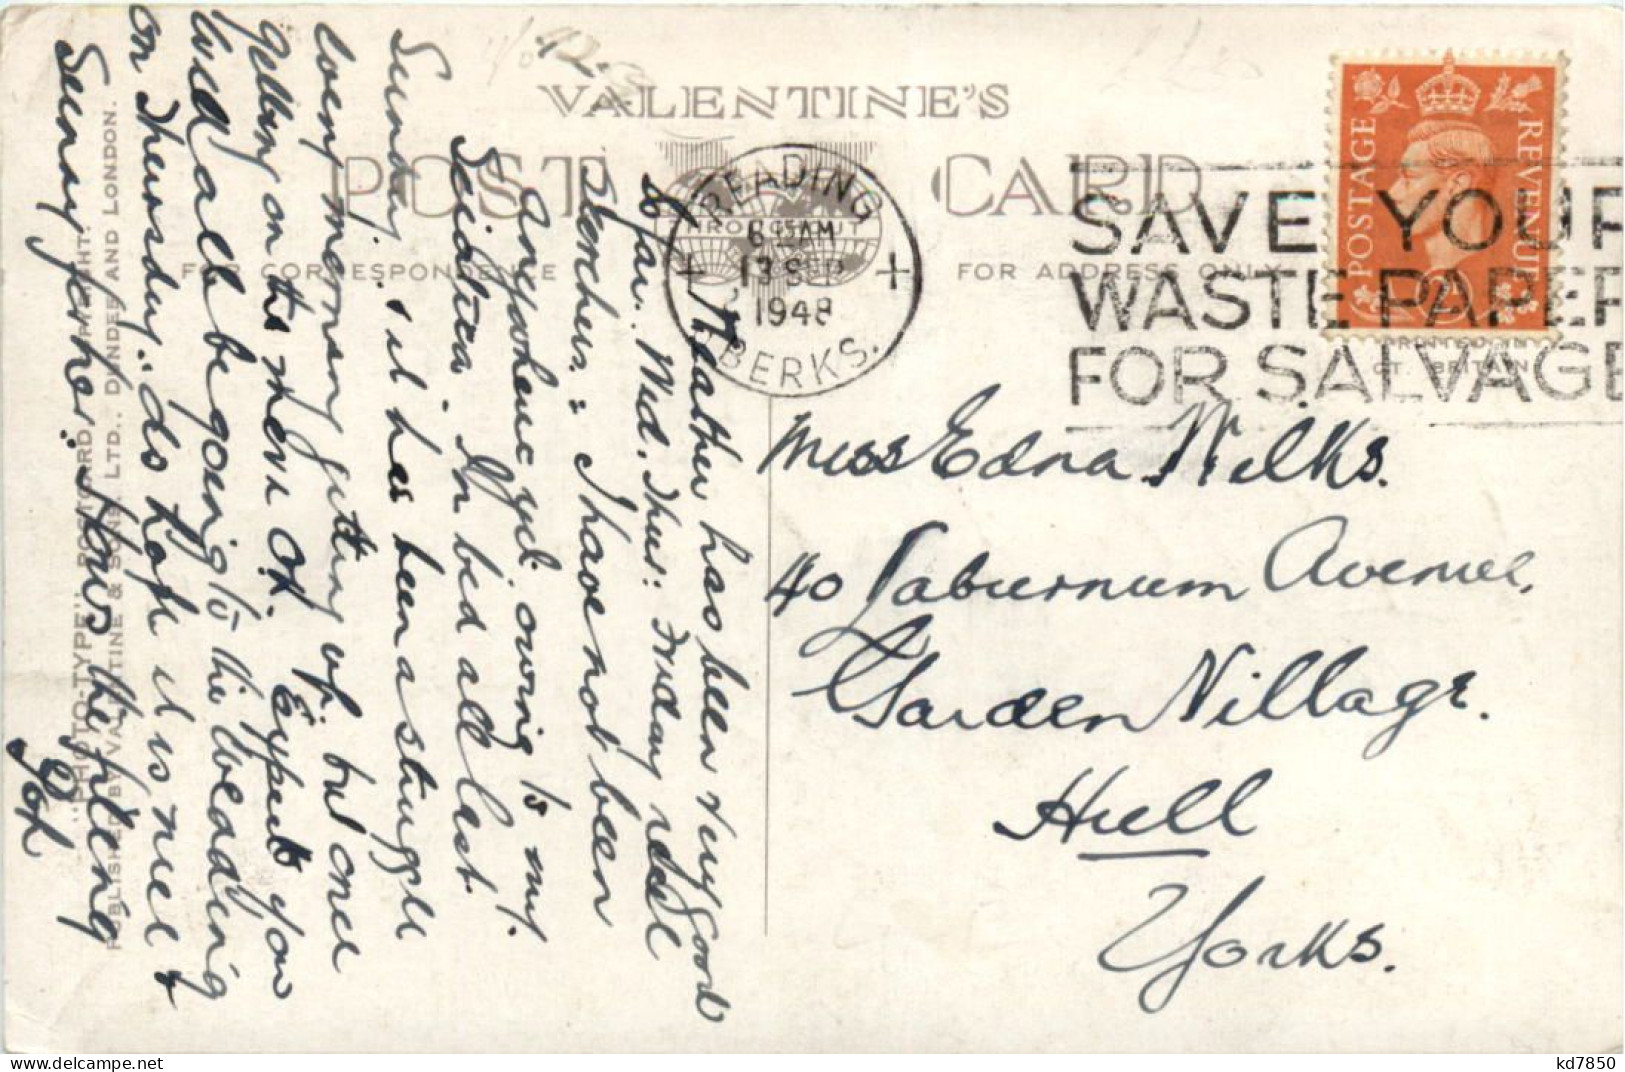 VALENTINE'S
POST CARD
FOR CORRESPONDENCE
FOR ADDRESS ONLY
READING
6 15 AM
13 SEP
1948
BERKS.
SAVE YOUR
WASTE PAPER
FOR SALVAGE
POSTAGE REVENUE
PRINTED IN
GT. BRITAIN
Weather has been very good
so far. Wed. Thurs: Friday real
Scorchers: I have not been
anywhere yet owing to my
Sciatica. In bed all last
Sunday. it has been a struggle
every morning getting up, but once
getting on the move OK. Expect you
will all be going to the wedding
on Thursday. do hope it is nice &
Sunny for her. Hows the
Miss Edna Wilks.
40 Laburnum Avenue.
Garden Village.
Hull
Yorks.
"PHOTO-TYPE" POSTCARD
PUBLISHED BY VALENTINE & SONS, LTD., DUNDEE AND LONDON.
kd7850